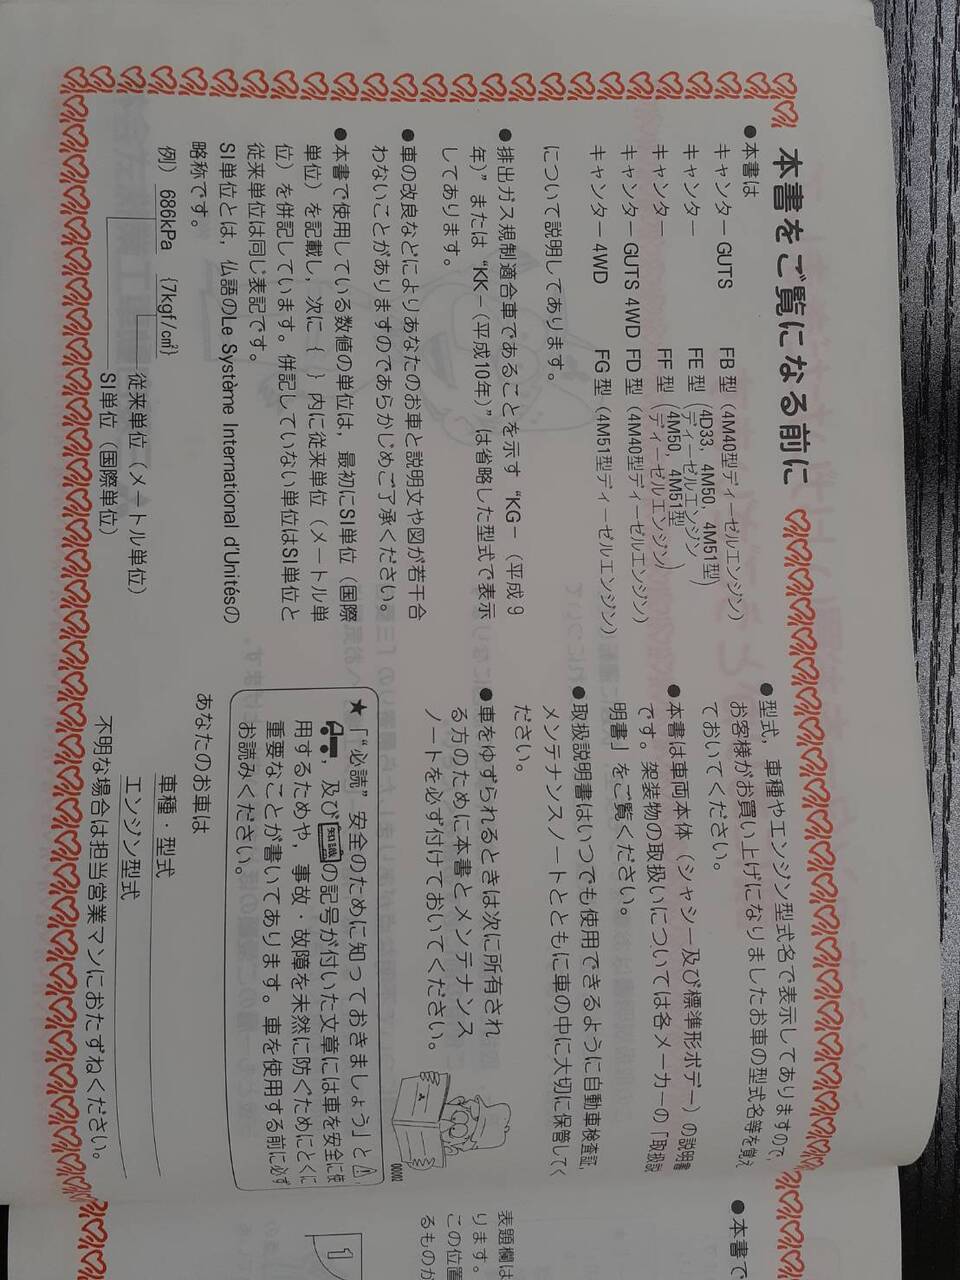 本書をご覧になる前に
●本書は
キャンター GUTS FB 型（4M40型ディーゼルエンジン）
キャンター FE 型（4D33，4M50，4M51型ディーゼルエンジン）
キャンター FF 型（4M50，4M51型ディーゼルエンジン）
キャンター GUTS 4WD FD 型（4M40型ディーゼルエンジン）
キャンター 4WD FG 型（4M51型ディーゼルエンジン）
について説明してあります。
●排出ガス規制適合車であることを示す“KG－（平成９
年）”または“KK－（平成10年）”は省略した型式で表示
してあります。
●車の改良などによりあなたのお車と説明文や図が若干合
わないことがありますのであらかじめご了承ください。
●本書で使用している数値の単位は，最初にSI単位（国際
単位）を記載し，次に｛ ｝内に従来単位（メートル単
位）を併記しています。併記していない単位はSI単位と
従来単位は同じ表記です。
SI単位とは，仏語のLe Système International d'Unitésの
略称です。
例）686kPa ｛7kgf/c㎡｝
従来単位（メートル単位）
SI単位（国際単位）
●型式，車種やエンジン型式名で表示してありますので，
お客様がお買い上げになりましたお車の型式名等を覚え
ておいてください。
●本書は車両本体（シャシー及び標準形ボデー）の説明書
です。架装物の取扱いについては各メーカーの「取扱説
明書」をご覧ください。
●取扱説明書はいつでも使用できるように自動車検査証，
メンテナンスノートとともに車の中に大切に保管してく
ださい。
●車をゆずられるときは次に所有され
る方のために本書とメンテナンス
ノートを必ず付けておいてください。
00002
★「“必読”安全のために知っておきましょう」と⚠，
，及び知識の記号が付いた文章には車を安全に使
用するためや，事故・故障を未然に防ぐためにとくに
重要なことが書いてあります。車を使用する前に必ず
お読みください。
あなたのお車は
車種・型式
エンジン型式
不明な場合は担当営業マンにおたずねください。
●本書で
表題欄は
ります。
この位置
るものか
1